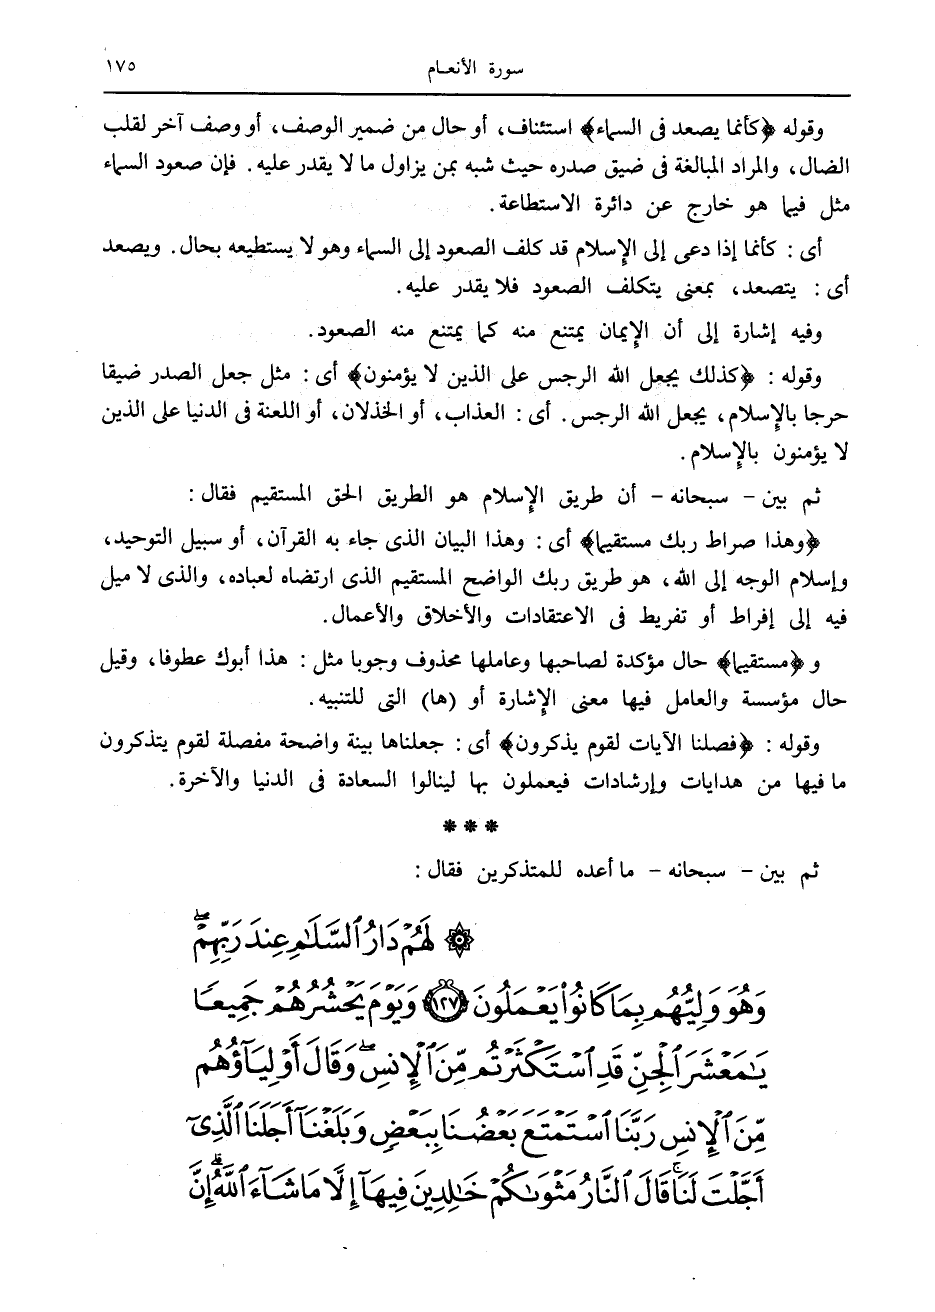 سورة الأنعـام ١٧٥
وقوله ﴿كأنما يصعد فى السماء﴾ استئناف، أو حال من ضمير الوصف، أو وصف آخر لقلب
الضال، والمراد المبالغة فى ضيق صدره حيث شبه بمن يزاول ما لا يقدر عليه. فإن صعود السماء
مثل فيما هو خارج عن دائرة الاستطاعة.
أى : كأنما إذا دعى إلى الإسلام قد كلف الصعود إلى السماء وهو لا يستطيعه بحال. ويصعد
أى : يتصعد، بمعنى يتكلف الصعود فلا يقدر عليه.
وفيه إشارة إلى أن الإيمان يمتنع منه كما يمتنع منه الصعود.
وقوله : ﴿كذلك يجعل الله الرجس على الذين لا يؤمنون﴾ أى : مثل جعل الصدر ضيقا
حرجا بالإسلام، يجعل الله الرجس. أى : العذاب، أو الخذلان، أو اللعنة فى الدنيا على الذين
لا يؤمنون بالإسلام.
ثم بين - سبحانه - أن طريق الإسلام هو الطريق الحق المستقيم فقال :
﴿وهذا صراط ربك مستقيما﴾ أى : وهذا البيان الذى جاء به القرآن، أو سبيل التوحيد،
وإسلام الوجه إلى الله، هو طريق ربك الواضح المستقيم الذى ارتضاه لعباده، والذى لا ميل
فيه إلى إفراط أو تفريط فى الاعتقادات والأخلاق والأعمال.
و ﴿مستقيما﴾ حال مؤكدة لصاحبها وعاملها محذوف وجوبا مثل : هذا أبوك عطوفا، وقيل
حال مؤسسة والعامل فيها معنى الإشارة أو (ها) التى للتنبيه.
وقوله : ﴿فصلنا الآيات لقوم يذكرون﴾ أى : جعلناها بينة واضحة مفصلة لقوم يتذكرون
ما فيها من هدايات وإرشادات فيعملون بها لينالوا السعادة فى الدنيا والآخرة.
* * *
ثم بين - سبحانه - ما أعده للمتذكرين فقال :
۞ لَهُمْ دَارُ ٱلسَّلَٰمِ عِندَ رَبِّهِمْ ۖ
وَهُوَ وَلِيُّهُم بِمَا كَانُوا۟ يَعْمَلُونَ ١٢٧ وَيَوْمَ يَحْشُرُهُمْ جَمِيعًا
يَٰمَعْشَرَ ٱلْجِنِّ قَدِ ٱسْتَكْثَرْتُم مِّنَ ٱلْإِنسِ ۖ وَقَالَ أَوْلِيَآؤُهُم
مِّنَ ٱلْإِنسِ رَبَّنَا ٱسْتَمْتَعَ بَعْضُنَا بِبَعْضٍ وَبَلَغْنَآ أَجَلَنَا ٱلَّذِىٓ
أَجَّلْتَ لَنَا ۚ قَالَ ٱلنَّارُ مَثْوَىٰكُمْ خَٰلِدِينَ فِيهَآ إِلَّا مَا شَآءَ ٱللَّهُ ۗ إِنَّ